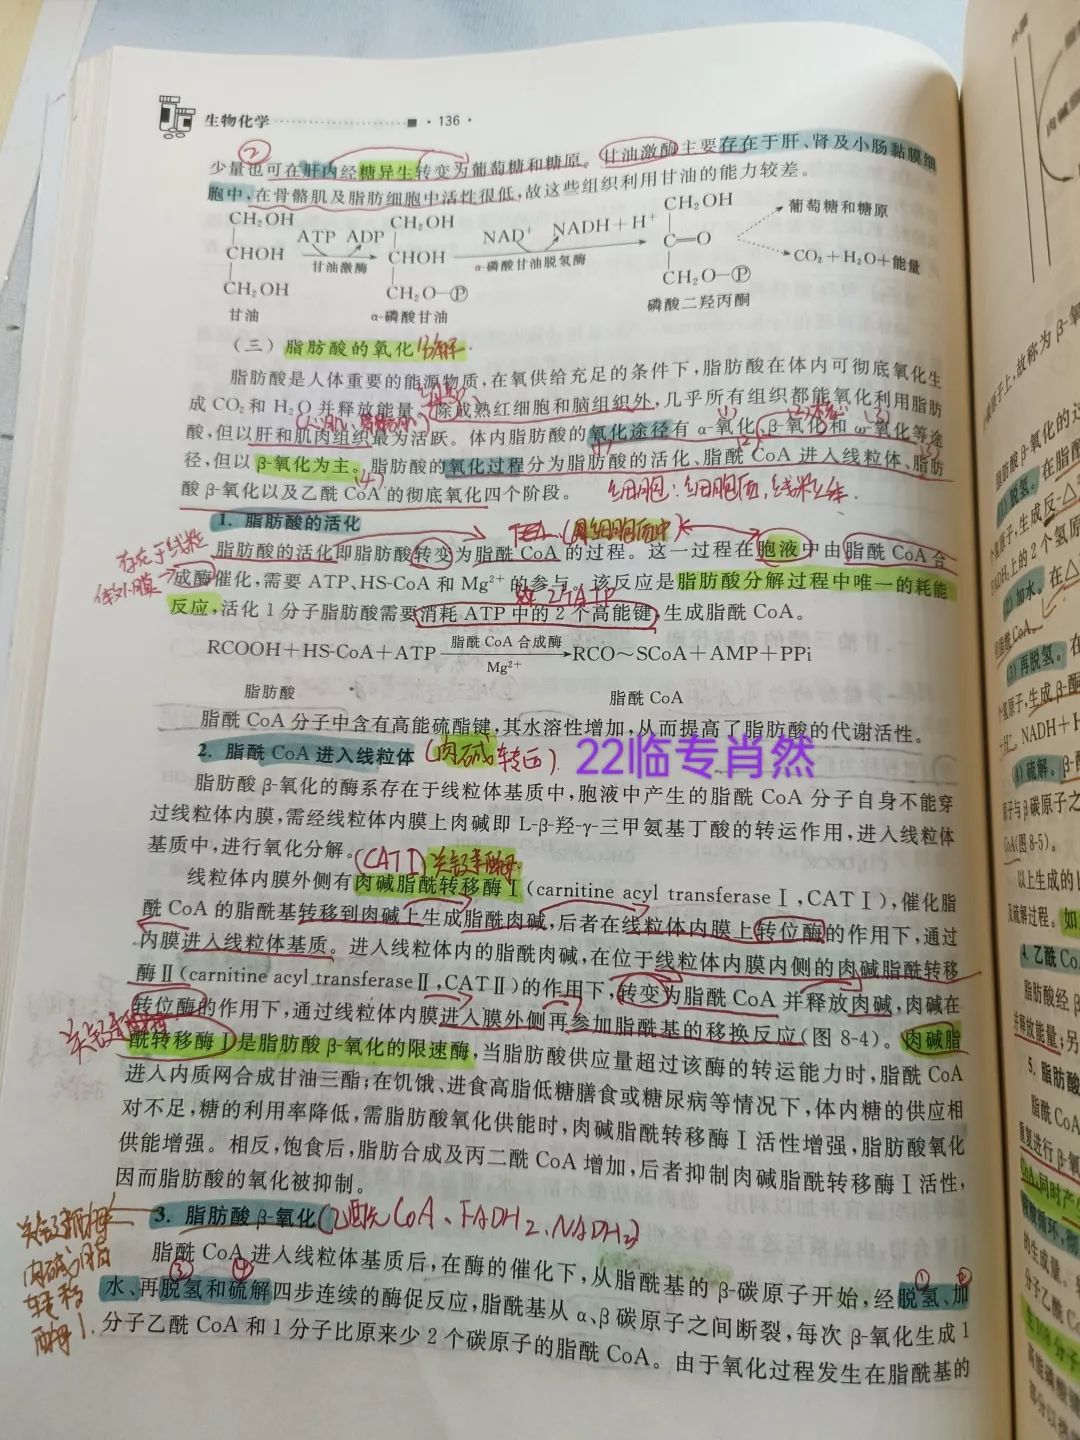 生物化学 ■ ·136·
少量也可在肝内经糖异生转变为葡萄糖和糖原。甘油激酶主要存在于肝、肾及小肠黏膜细
胞中,在骨骼肌及脂肪细胞中活性很低,故这些组织利用甘油的能力较差。
CH₂OH CH₂OH CH₂OH 葡萄糖和糖原
CHOH ATP ADP CHOH NAD⁺ NADH+H⁺ C=O
甘油激酶 α-磷酸甘油脱氢酶 CO₂+H₂O+能量
CH₂OH CH₂O-Ⓟ CH₂O-Ⓟ
甘油 α-磷酸甘油 磷酸二羟丙酮
(三)脂肪酸的氧化分解
脂肪酸是人体重要的能源物质,在氧供给充足的条件下,脂肪酸在体内可彻底氧化生
成 CO₂ 和 H₂O 并释放能量。除成熟红细胞和脑组织外,几乎所有组织都能氧化利用脂肪
酸,但以肝和肌肉组织最为活跃。体内脂肪酸的氧化途径有 α-氧化、β-氧化和 ω-氧化等途
径,但以 β-氧化为主。脂肪酸的氧化过程分为脂肪酸的活化、脂酰 CoA 进入线粒体、脂肪
酸 β-氧化以及乙酰 CoA 的彻底氧化四个阶段。
亚细胞:细胞质,线粒体.
1. 脂肪酸的活化
脂肪酸的活化即脂肪酸转变为脂酰 CoA 的过程。这一过程在胞液中由脂酰 CoA 合
存在于线粒
体外膜
成酶催化,需要 ATP、HS-CoA 和 Mg²⁺ 的参与。该反应是脂肪酸分解过程中唯一的耗能
反应,活化 1 分子脂肪酸需要消耗 ATP 中的 2 个高能键,生成脂酰 CoA。
RCOOH+HS-CoA+ATP 脂酰 CoA 合成酶 Mg²⁺ RCO～SCoA+AMP+PPi
脂肪酸 脂酰 CoA
脂酰 CoA 分子中含有高能硫酯键,其水溶性增加,从而提高了脂肪酸的代谢活性。
2. 脂酰 CoA 进入线粒体(肉碱转运). 22临专肖然
脂肪酸 β-氧化的酶系存在于线粒体基质中,胞液中产生的脂酰 CoA 分子自身不能穿
过线粒体内膜,需经线粒体内膜上肉碱即 L-β-羟-γ-三甲氨基丁酸的转运作用,进入线粒体
基质中,进行氧化分解。
(CATⅠ)关键酶
线粒体内膜外侧有肉碱脂酰转移酶Ⅰ(carnitine acyl transferaseⅠ,CATⅠ),催化脂
酰 CoA 的脂酰基转移到肉碱上生成脂酰肉碱,后者在线粒体内膜上转位酶的作用下,通过
内膜进入线粒体基质。进入线粒体内的脂酰肉碱,在位于线粒体内膜内侧的肉碱脂酰转移
酶Ⅱ(carnitine acyl transferaseⅡ,CATⅡ)的作用下,转变为脂酰 CoA 并释放肉碱,肉碱在
转位酶的作用下,通过线粒体内膜进入膜外侧再参加脂酰基的移换反应(图 8-4)。肉碱脂
关键酶
酰转移酶Ⅰ是脂肪酸 β-氧化的限速酶,当脂肪酸供应量超过该酶的转运能力时,脂酰 CoA
进入内质网合成甘油三酯;在饥饿、进食高脂低糖膳食或糖尿病等情况下,体内糖的供应相
对不足,糖的利用率降低,需脂肪酸氧化供能时,肉碱脂酰转移酶Ⅰ活性增强,脂肪酸氧化
供能增强。相反,饱食后,脂肪合成及丙二酰 CoA 增加,后者抑制肉碱脂酰转移酶Ⅰ活性,
因而脂肪酸的氧化被抑制。
3. 脂肪酸 β-氧化(乙酰CoA、FADH₂、NADH₂)
关键酶
肉碱脂酯
转移
酶1.
脂酰 CoA 进入线粒体基质后,在酶的催化下,从脂酰基的 β-碳原子开始,经脱氢、加
水、再脱氢和硫解四步连续的酶促反应,脂酰基从 α、β 碳原子之间断裂,每次 β-氧化生成 1
分子乙酰 CoA 和 1 分子比原来少 2 个碳原子的脂酰 CoA。由于氧化过程发生在脂酰基的